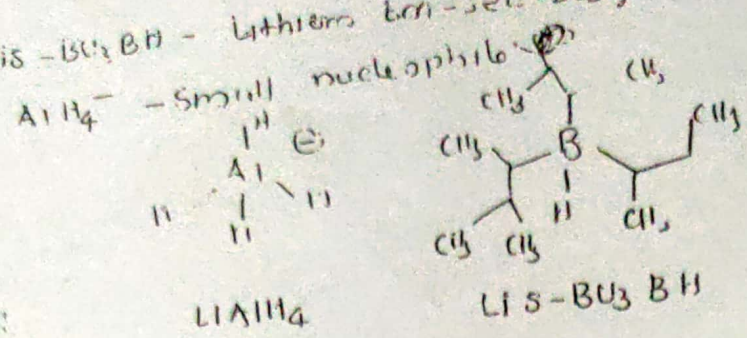 is - BU3 BH - Lithium
AlH4⁻ - Small nucleophile
CH3
CH3
CH3
CH3
B
H
⊖
Al
H
H
H
H
CH3
CH3 CH3
H
LiAlH4
Li S-BU3 BH